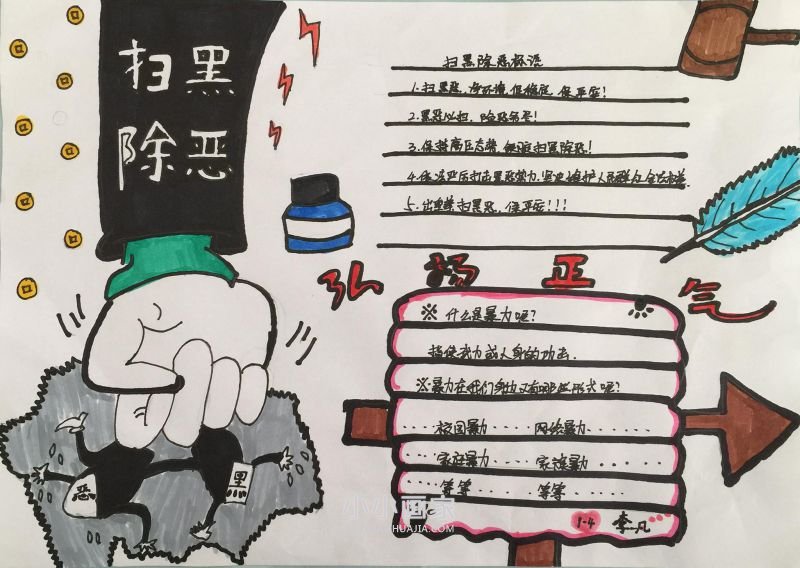 扫黑
除恶
扫黑除恶标语
1.扫黑恶,净环境,促稳定,保平安!
2.黑恶必扫,除恶务尽!
3.保持高压态势,铁腕扫黑除恶!
4.依法严厉打击黑恶势力,坚决维护人民群众
5.出重拳扫黑恶,保平安!!!
弘扬正气
※什么是暴力呢?
指使武力或人身的功击.
※暴力在我们身边又有哪些形式呢?
....校园暴力.....网络暴力.......
....家庭暴力.....家族暴力......
....等等......等等......
1-4 李凡
恶
黑
小小画家
HUAJIA.COM